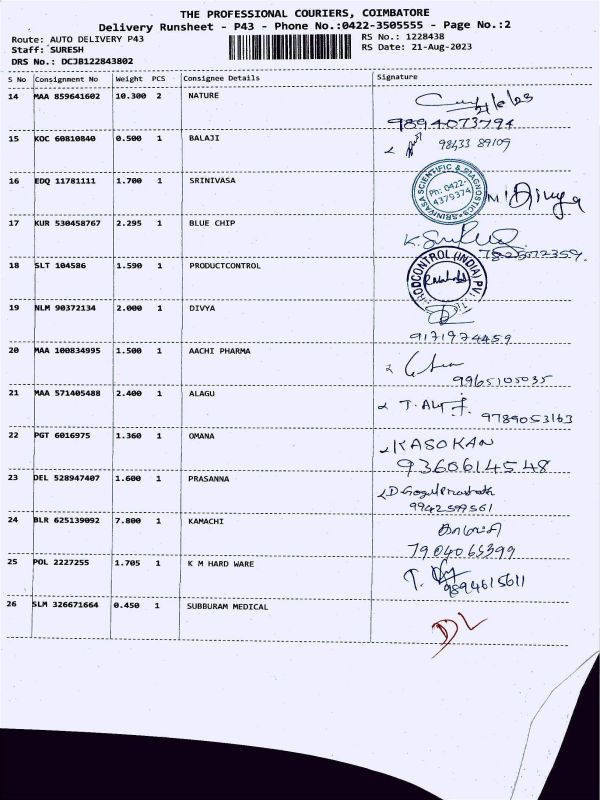 THE PROFESSIONAL COURIERS, COIMBATORE
Delivery Runsheet - P43 - Phone No.:0422-3505555 - Page No.:2
Route: AUTO DELIVERY P43 RS No.: 1228438
Staff: SURESH RS Date: 21-Aug-2023
DRS No.: DCJB122843802
S No Consignment No Weight PCS Consignee Details Signature
14 MAA 859641602 10.300 2 NATURE
9894073794
15 KOC 60810840 0.500 1 BALAJI 98433 89109
16 EDQ 11781111 1.700 1 SRINIVASA
SRINIVASA SCIENTIFIC & DIAGNOSTICS
Ph: 0422-
4379374
M. Divya
17 KUR 530458767 2.295 1 BLUE CHIP
18 SLT 104586 1.590 1 PRODUCTCONTROL
19 NLM 90372134 2.000 1 DIVYA
9171974459
20 MAA 100834995 1.500 1 AACHI PHARMA
9965105035
21 MAA 571405488 2.400 1 ALAGU
9789053163
22 PGT 6016975 1.360 1 OMANA
KASOKAN
9360614548
23 DEL 528947407 1.600 1 PRASANNA
9942599561
24 BLR 625139092 7.800 1 KAMACHI
7904065399
25 POL 2227255 1.705 1 K M HARD WARE
9894615611
26 SLM 326671664 0.450 1 SUBBURAM MEDICAL
DL